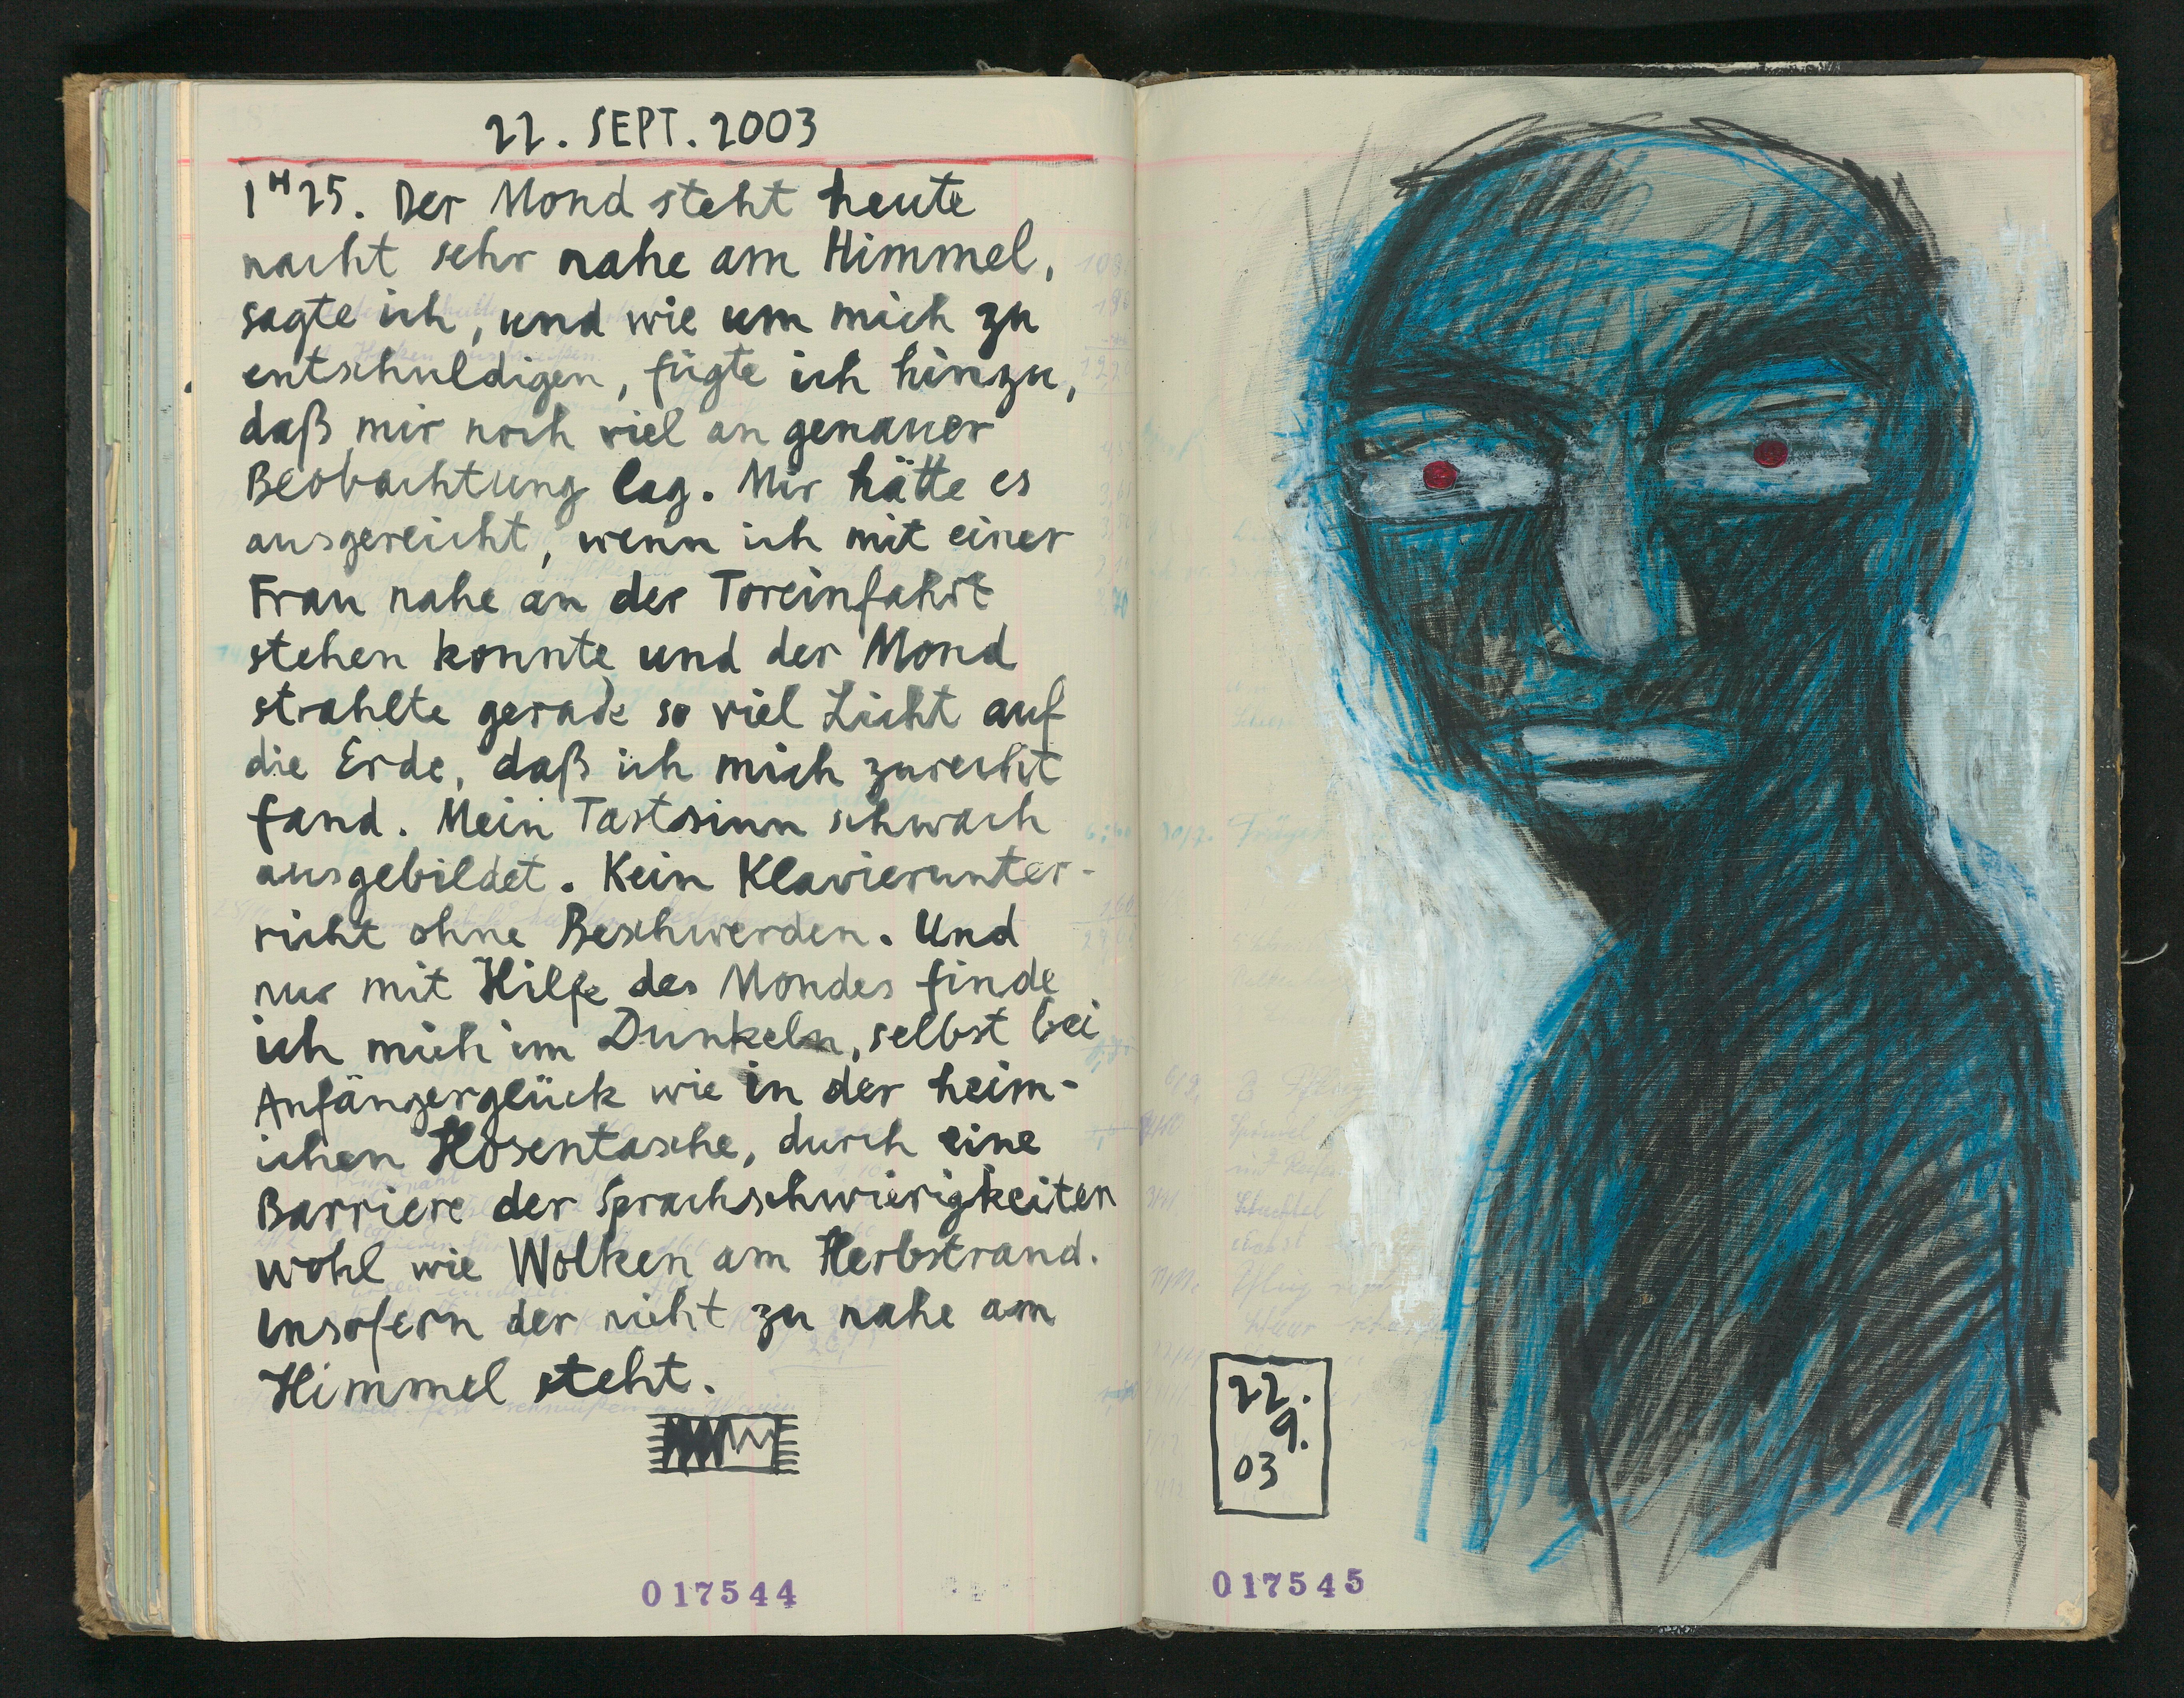 22. SEPT. 2003
1ᴴ25. Der Mond steht heute
nacht sehr nahe am Himmel,
sagte ich, und wie um mich zu
entschuldigen, fügte ich hinzu,
daß mir noch viel an genauer
Beobachtung lag. Mir hätte es
ausgereicht, wenn ich mit einer
Frau nahe an der Toreinfahrt
stehen konnte und der Mond
strahlte gerade so viel Licht auf
die Erde, daß ich mich zurecht
fand. Mein Tastsinn schwach
ausgebildet. Kein Klavierunter-
richt ohne Beschwerden. Und
nur mit Hilfe des Mondes finde
ich mich im Dunkeln, selbst bei
Anfängerglück wie in der heim-
ichen Hosentasche, durch eine
Barriere der Sprachschwierigkeiten
wohl wie Wolken am Herbstrand.
Insofern der nicht zu nahe am
Himmel steht.
017544
22.
9.
03
017545